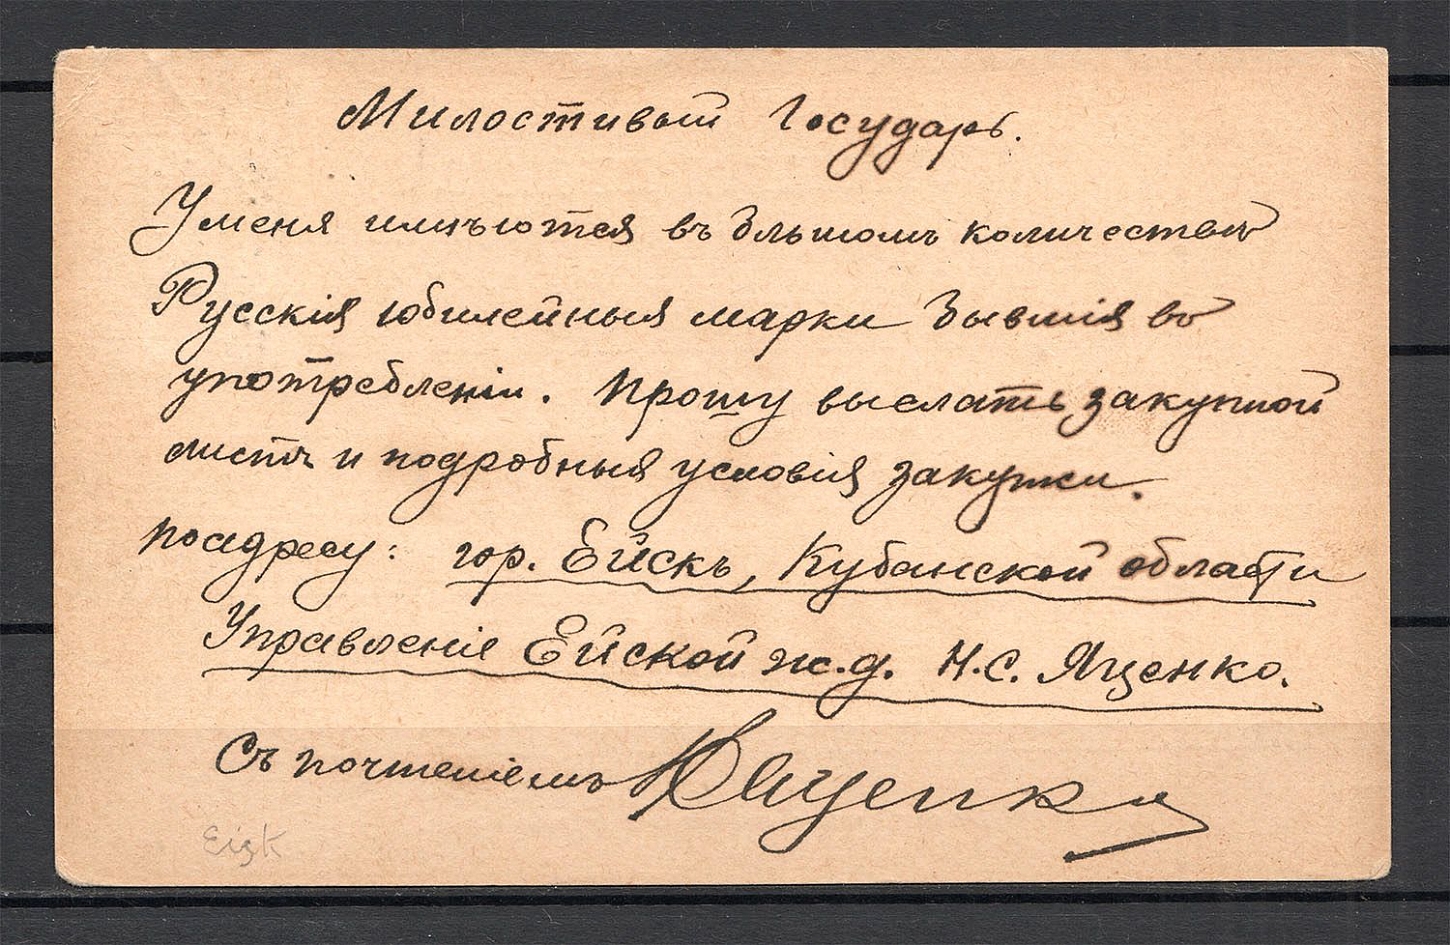 Милостивый Государь.
У меня имѣются въ большомъ количествѣ
Русскія юбилейныя марки бывшія въ
употребленіи. Прошу выслать закупной
листъ и подробныя условія закупки.
по адресу: гор. Ейскъ, Кубанской области
Управленіе Ейской ж.д. Н.С. Яценко.
Съ почтеніемъ НСЯценко
Eisk